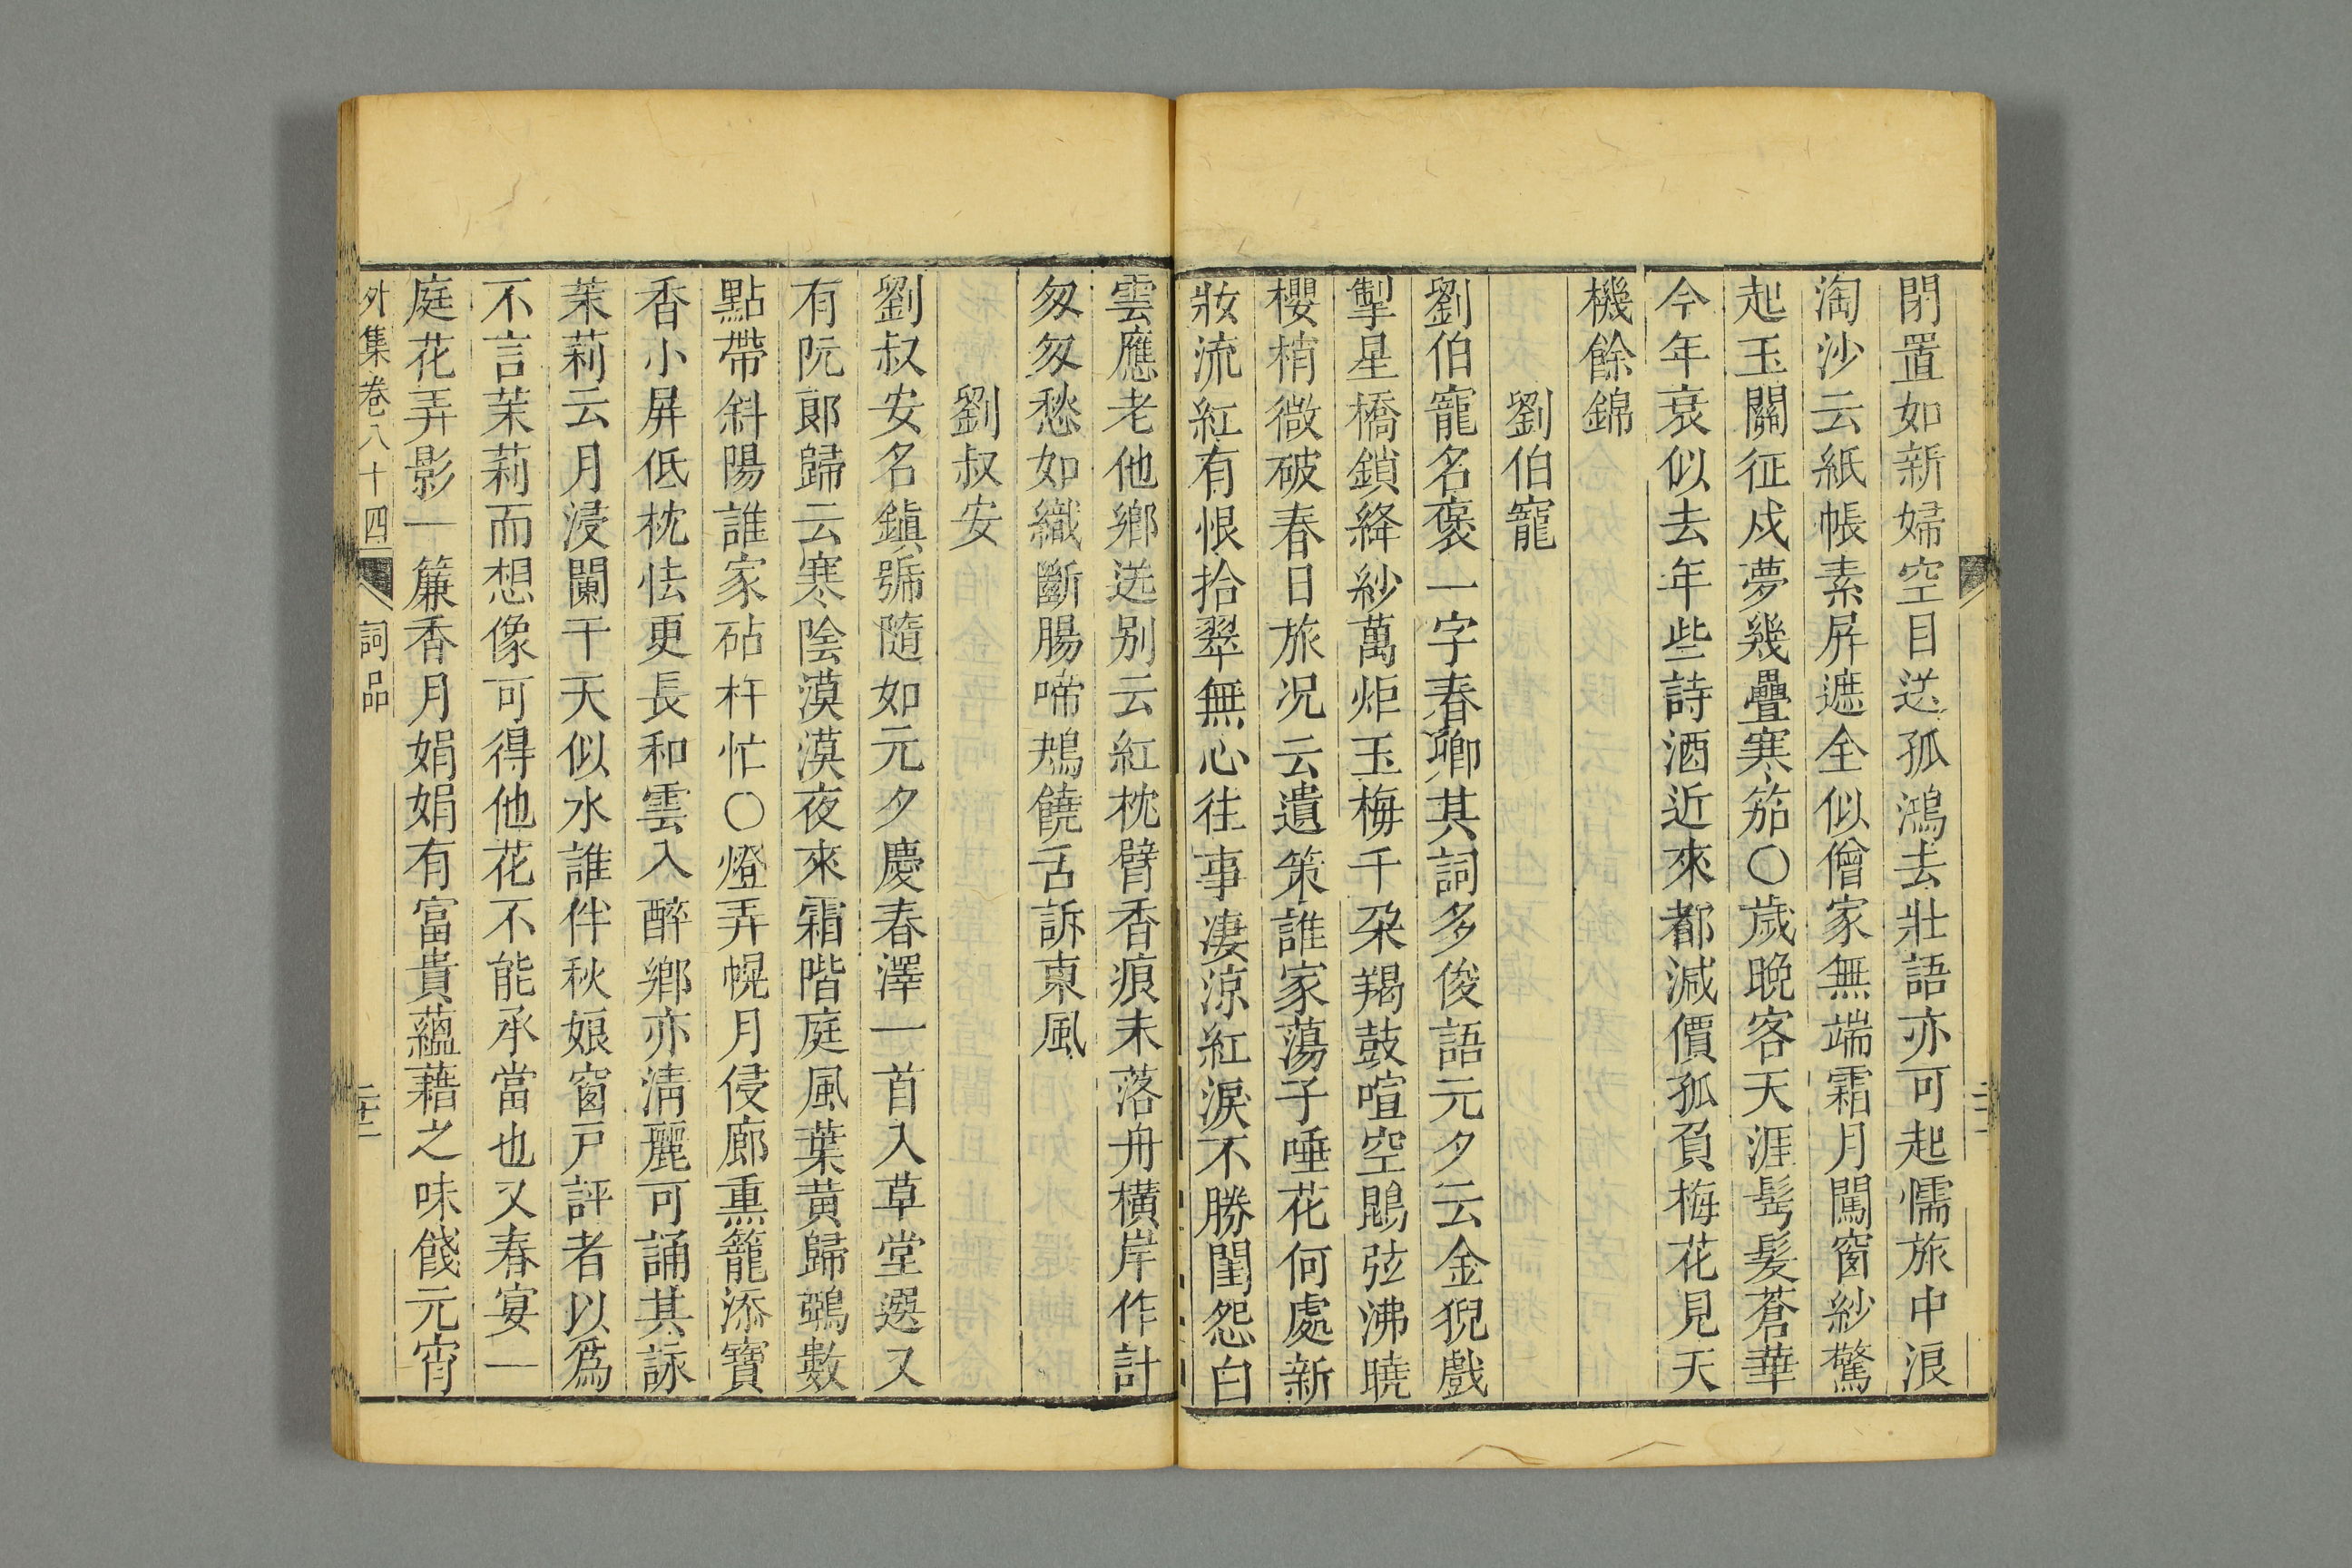 閉置如新婦空目送孤鴻去壯語亦可起懦旅中浪
淘沙云紙帳素屏遮全似僧家無端霜月闖窗紗驚
起玉關征戍夢幾疊寒笳○歲晚客天涯髩髮蒼華
今年衰似去年些詩酒近來都減價孤負梅花見天
機餘錦
劉伯寵
劉伯寵名褒一字春卿其詞多俊語元夕云金猊戲
掣星橋鎖絳紗萬炬玉梅千朶羯鼓喧空鵾弦沸曉
櫻梢微破春日旅况云遺策誰家蕩子唾花何處新
妝流紅有恨拾翠無心往事凄涼紅淚不勝閨怨白
雲應老他鄉送別云紅枕臂香痕未落舟橫岸作計
匆匆愁如織斷腸啼鴂饒舌訴東風
劉叔安
劉叔安名鎮號隨如元夕慶春澤一首入草堂選又
有阮郎歸云寒陰漠漠夜來霜階庭風葉黄歸鴉數
點帶斜陽誰家砧杵忙○燈弄幌月侵廊熏籠添寶
香小屏低枕怯更長和雲入醉鄉亦淸麗可誦其詠
茉莉云月浸闌干天似水誰伴秋娘窗戸評者以爲
不言茉莉而想像可得他花不能承當也又春宴一
庭花弄影一簾香月娟娟有富貴蘊藉之味餞元宵
外集卷八十四 詞品 二十二